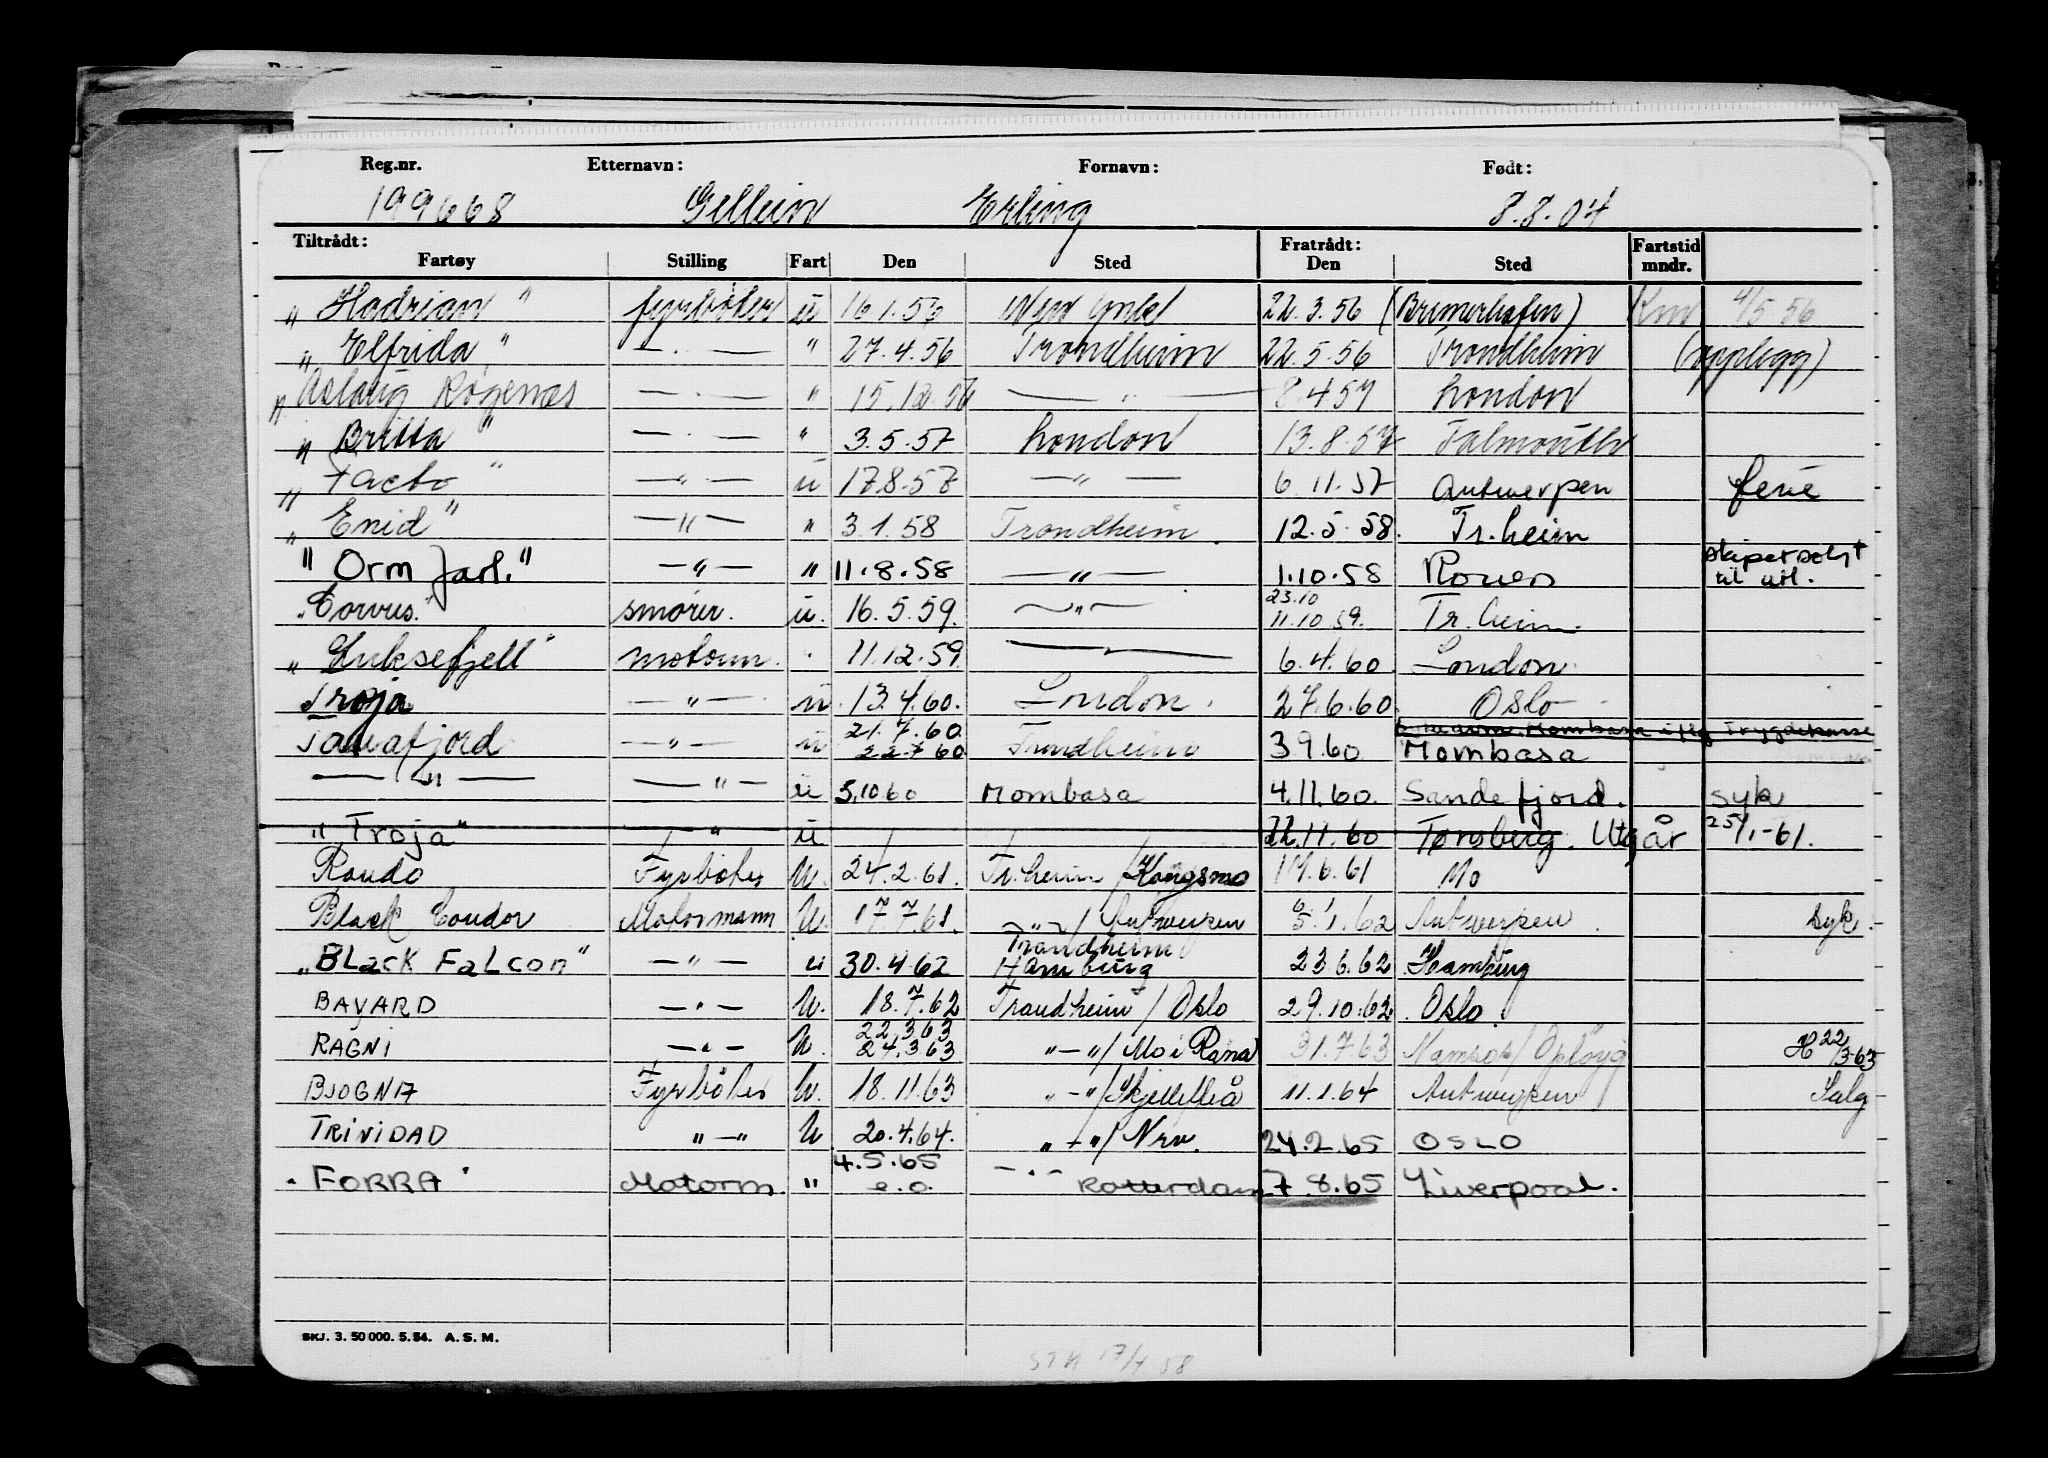 Reg.nr. Etternavn: Fornavn: Født:
199668 Gellein Erling 8.8.04
Tiltrådt: Fratrådt: Fartstid
Fartøy Stilling Fart Den Sted Den Sted mndr.
"Hadrian" fyrbøter u 16.1.56 New York 22.3.56 (Bremerhafen) 4/5 56
"Elfrida" — . — " 27.4.56 Trondheim 22.5.56 Trondheim (opplegg)
"Aslaug Rogenæs — . — " 15.12.56 — " — 8.4.57 London
"Britta" — . — " 3.5.57 London 13.8.57 Falmouth
"Facto" — " — u 17.8.57 — " — 6.11.57 Antwerpen ferie
"Enid" — " — " 3.1.58 Trondheim. 12.5.58. Tr.heim
"Orm Jarl." — " — " 11.8.58 — " — 1.10.58 Rouen skipet solgt til utl.
"Corvus." smører. u. 16.5.59. — " — 23.10 11.10 59. Tr.heim.
"Luksefjell" motorm. . 11.12.59. — " — 6.4.60. London
Troja — " — u. 13.4.60. London. 27.6.60. Oslo
Tanafjord — " — u 21.7.60. 22.7 60 Trondheim 3 9.60 Mombasa
— " — — " — u 5.10 60 Mombasa 4.11.60. Sandefjord. syk
"Troja" — " u 22.11.60 Tønsberg. Utgår 25/1-61.
Rondo Fyrbøter U. 24.2.61. Tr.heim / Kongsmo 17.6.61 Mo
Black Condor Motormann U. 17.7.61. — " — / Antwerpen 6 1 5.1.62 Antwerpen. Syk.
"BLacK FaLcon" — " — u 30.4.62 Trondheim Hamburg 23 6.62 Hamburg
BAYARD — " — U. 18.7.62 Trondheim / Oslo 29.10.62. Oslo.
RAGNI — " — U. 22.3 63 24.3.63 " — " / Mo i Rana 31.7.63 Namsos / Oplegg H 22/3-63
BJOGNA Fyrbøter U. 18.11.63 " — " / Skjellelså 11.1.64 Antwerpen Salg
TRINIDAD " — " U 20.4.64. " — " / Nrv. 24.2.65 OSLO
"FORRA" Motorm. " 4.5.65 e.o. — " — Rotterdam 7 8.65 Liverpool.
SKJ. 3. 50 000. 5. 54. A. S. M.
17/4 58